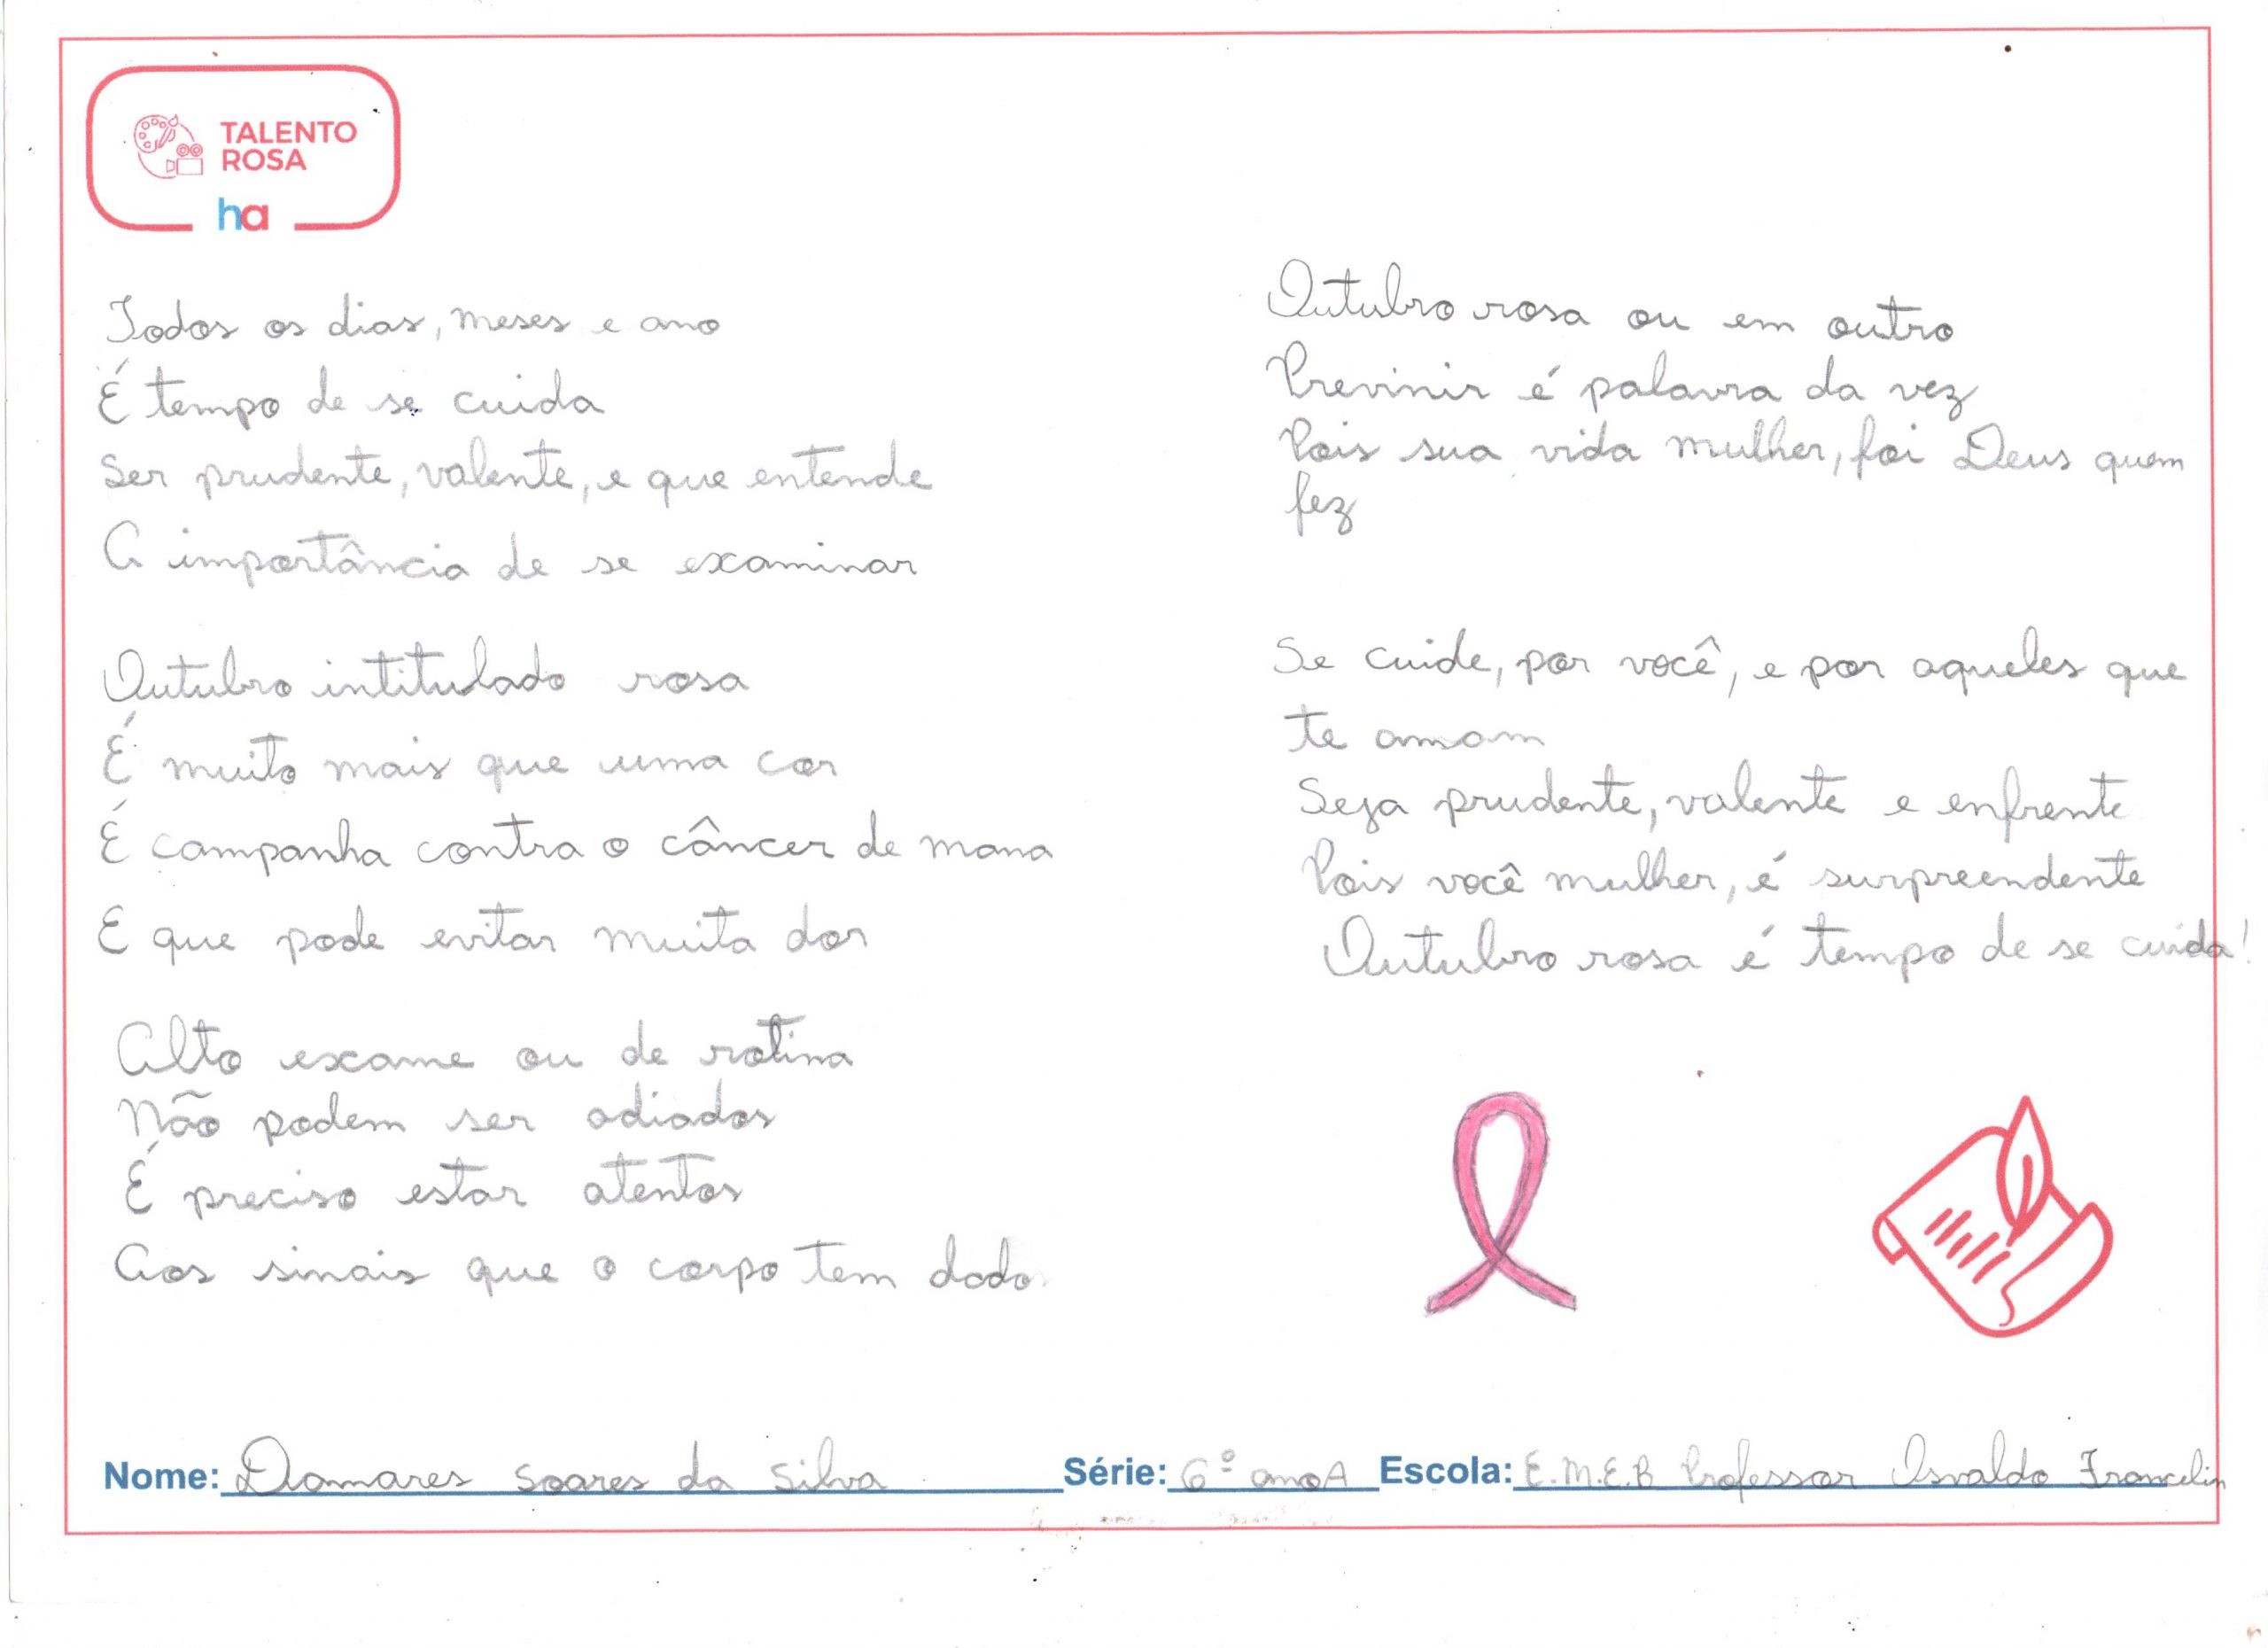 TALENTO
ROSA
ha
Todos os dias, meses e ano
É tempo de se cuida
Ser prudente, valente, e que entende
A importância de se examinar
Outubro intitulado rosa
É muito mais que uma cor
É campanha contra o câncer de mama
E que pode evitar muita dor
Alto exame ou de rotina
Não podem ser adiados
É preciso estar atentos
Aos sinais que o corpo tem dado
Outubro rosa ou em outro
Previnir é palavra da vez
Pois sua vida mulher, foi Deus quem
fez
Se cuide, por você, e por aqueles que
te amam
Seja prudente, valente e enfrente
Pois você mulher, é surpreendente
Outubro rosa é tempo de se cuida!
Nome: Damares Soares da Silva Série: 6º ano A Escola: E.M.E.B Professor Osvaldo Francelin